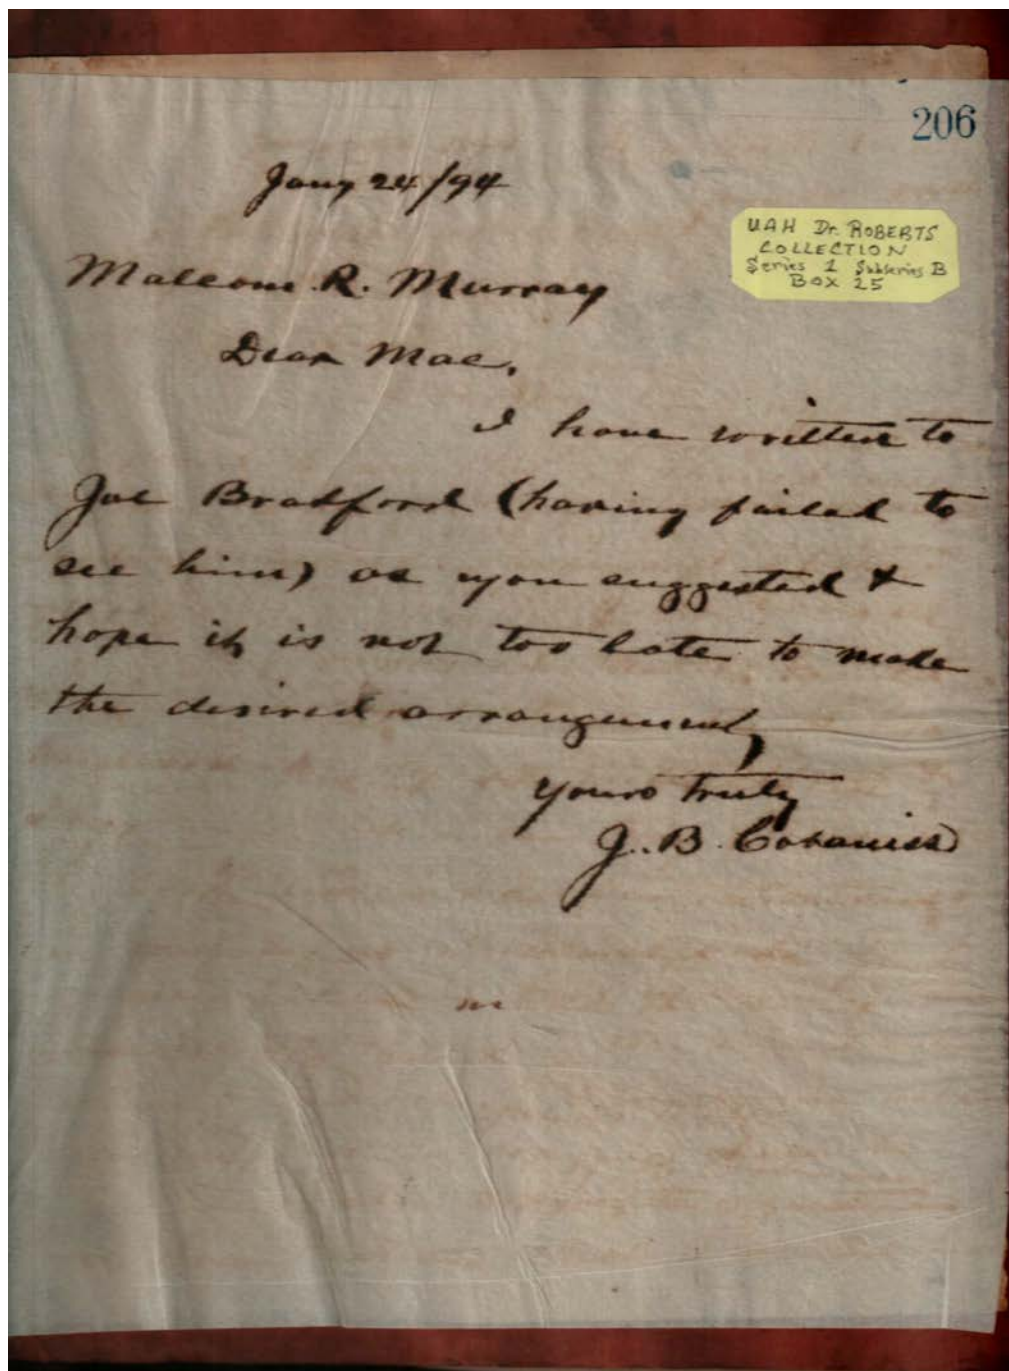 206
Jany 24/94
UAH Dr. ROBERTS
COLLECTION
Series 1 Subseries B
BOX 25
Malcom R. Murray
Dear Mac.
I have written to
Joe Bradford (having failed to
see him) as you suggested &
hope it is not too late to make
the desired arrangement,
Yours truly
J. B. Cabaniss